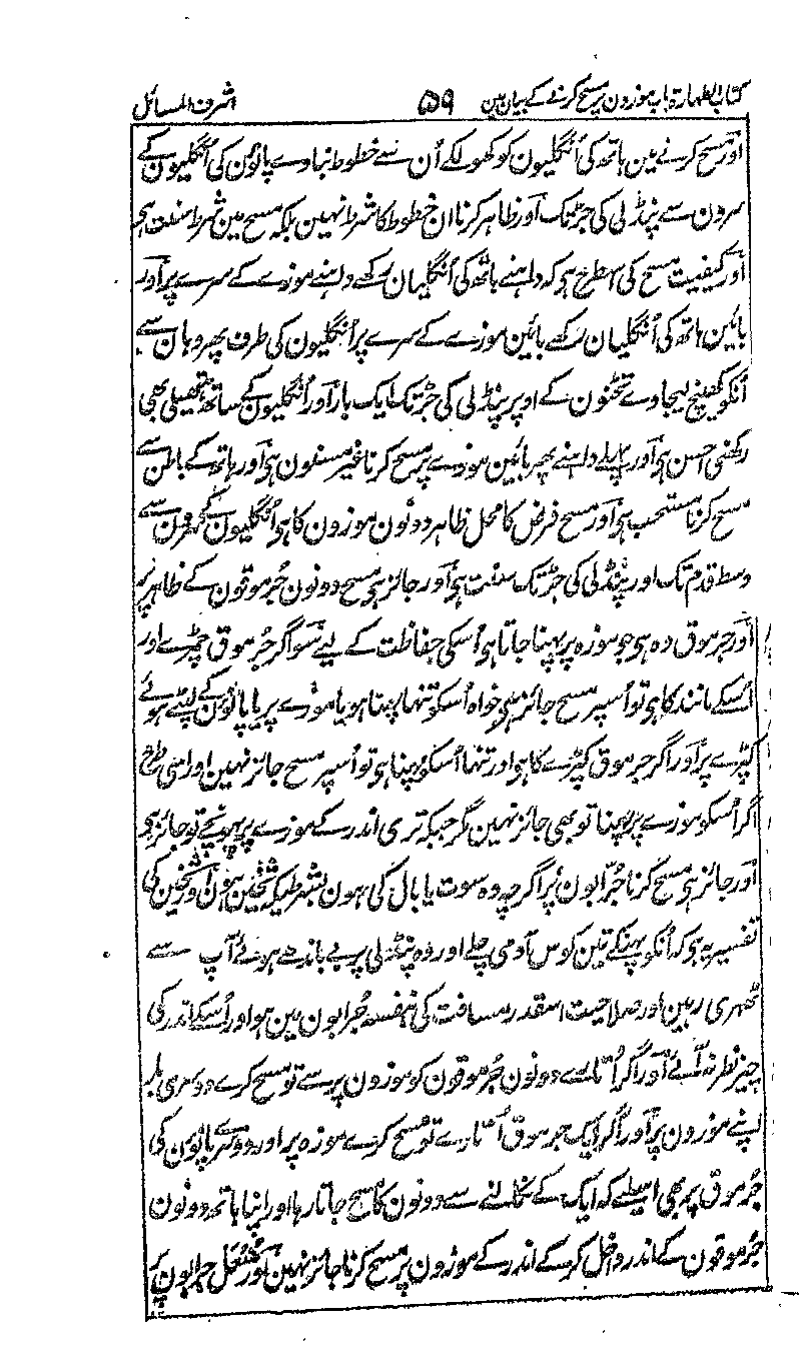 کتاب الطہارۃ باب موزون پر مسح کرنے کے بیان مین ۵۹ اشرف المسائل
اور مسح کرنے مین ہاتھ کی اُنگلیون کو کھولکے اُن سے خطوط بنادے پاؤن کی اُنگلیون کے
سرون سے پنڈلی کی جڑ تک اور ظاہر کرنا ان خطوط کا شرط نہین بلکہ مسح مین شرط سنت ہی
اور کیفیت مسح کی اسطرح ہو کہ داہنے ہاتھ کی اُنگلیان رکھے داہنے موزے کے سرے پر اور
بائین ہاتھ کی اُنگلیان رکھے بائین موزے کے سرے پر اُنگلیون کی طرف پھر وہان سے
اُنکو کھینچ لیجاوے ٹخنون کے اوپر پنڈلی کی جڑ تک ایک بار اور اُنگلیون کے ساتھ ہتھیلی بھی
رکھنی احسن ہو اور پہلے داہنے پھر بائین موزے پر مسح کرنا غیر مسنون ہو اور ہاتھ کے باطن سے
مسح کرنا مستحب ہو اور مسح فرض کا محل ظاہر دونون موزون کا ہو اُنگلیون کے سرون سے
وسط قدم تک اور پنڈلی کی جڑ تک سنت ہو اور جائز ہی مسح دونون جُرموقون کے ظاہر پر
اور جرموق وہ ہو جو موزہ پر پہنا جاتا ہو اُسکی حفاظت کے لیے سو اگر جُرموق چمڑے اور
اُسکے مانند کا ہو تو اُسپر مسح جائز ہی خواہ اُسکو تنہا پہنا ہو یا موزے پر یا پاؤن کے لپٹے ہوئے
کپڑے پر اور اگر جرموق کپڑے کا ہو اور تنہا اُسکو پہنا ہی تو اُسپر مسح جائز نہین اور اسی طرح
اگر اُسکو موزے پر پہنا تو بھی جائز نہین مگر جبکہ تری اندر کے موزے پر پہونچے تو جائز ہو
اور جائز ہی مسح کرنا جُرّابون پر اگرچہ وہ سوت یا بال کی ہون بشرطیکہ ثخین ہون اور ثخین کی
تفسیر یہ ہو کہ اُنکو پہنکے تین کوس آدمی چلے اور وہ پنڈلی پر بے باندھے ہوئے آپ سے
ٹھہری رہین اور صلاحیت اسقدر مسافت کی بنفسہ جُرابون مین ہو اور اُسکے اندر کی
چیز نظر نہ آئے اور اگر اُتارے دونون جُرموقون کو موزون پر سے تو مسح کرے دوسری بار
اپنے موزون پر اور اگر ایک جرموق اُتارے تو مسح کرے موزہ پر اور دوسرے پاؤن کی
جُرموق پر بھی اسلیے کہ ایک کے نکالنے سے دونون کا مسح جاتا رہا اور اپنا ہاتھ دونون
جُرموقون کے اندر داخل کر کے اندر کے موزون پر مسح کرنا جائز نہین اور منعل جرابون پر